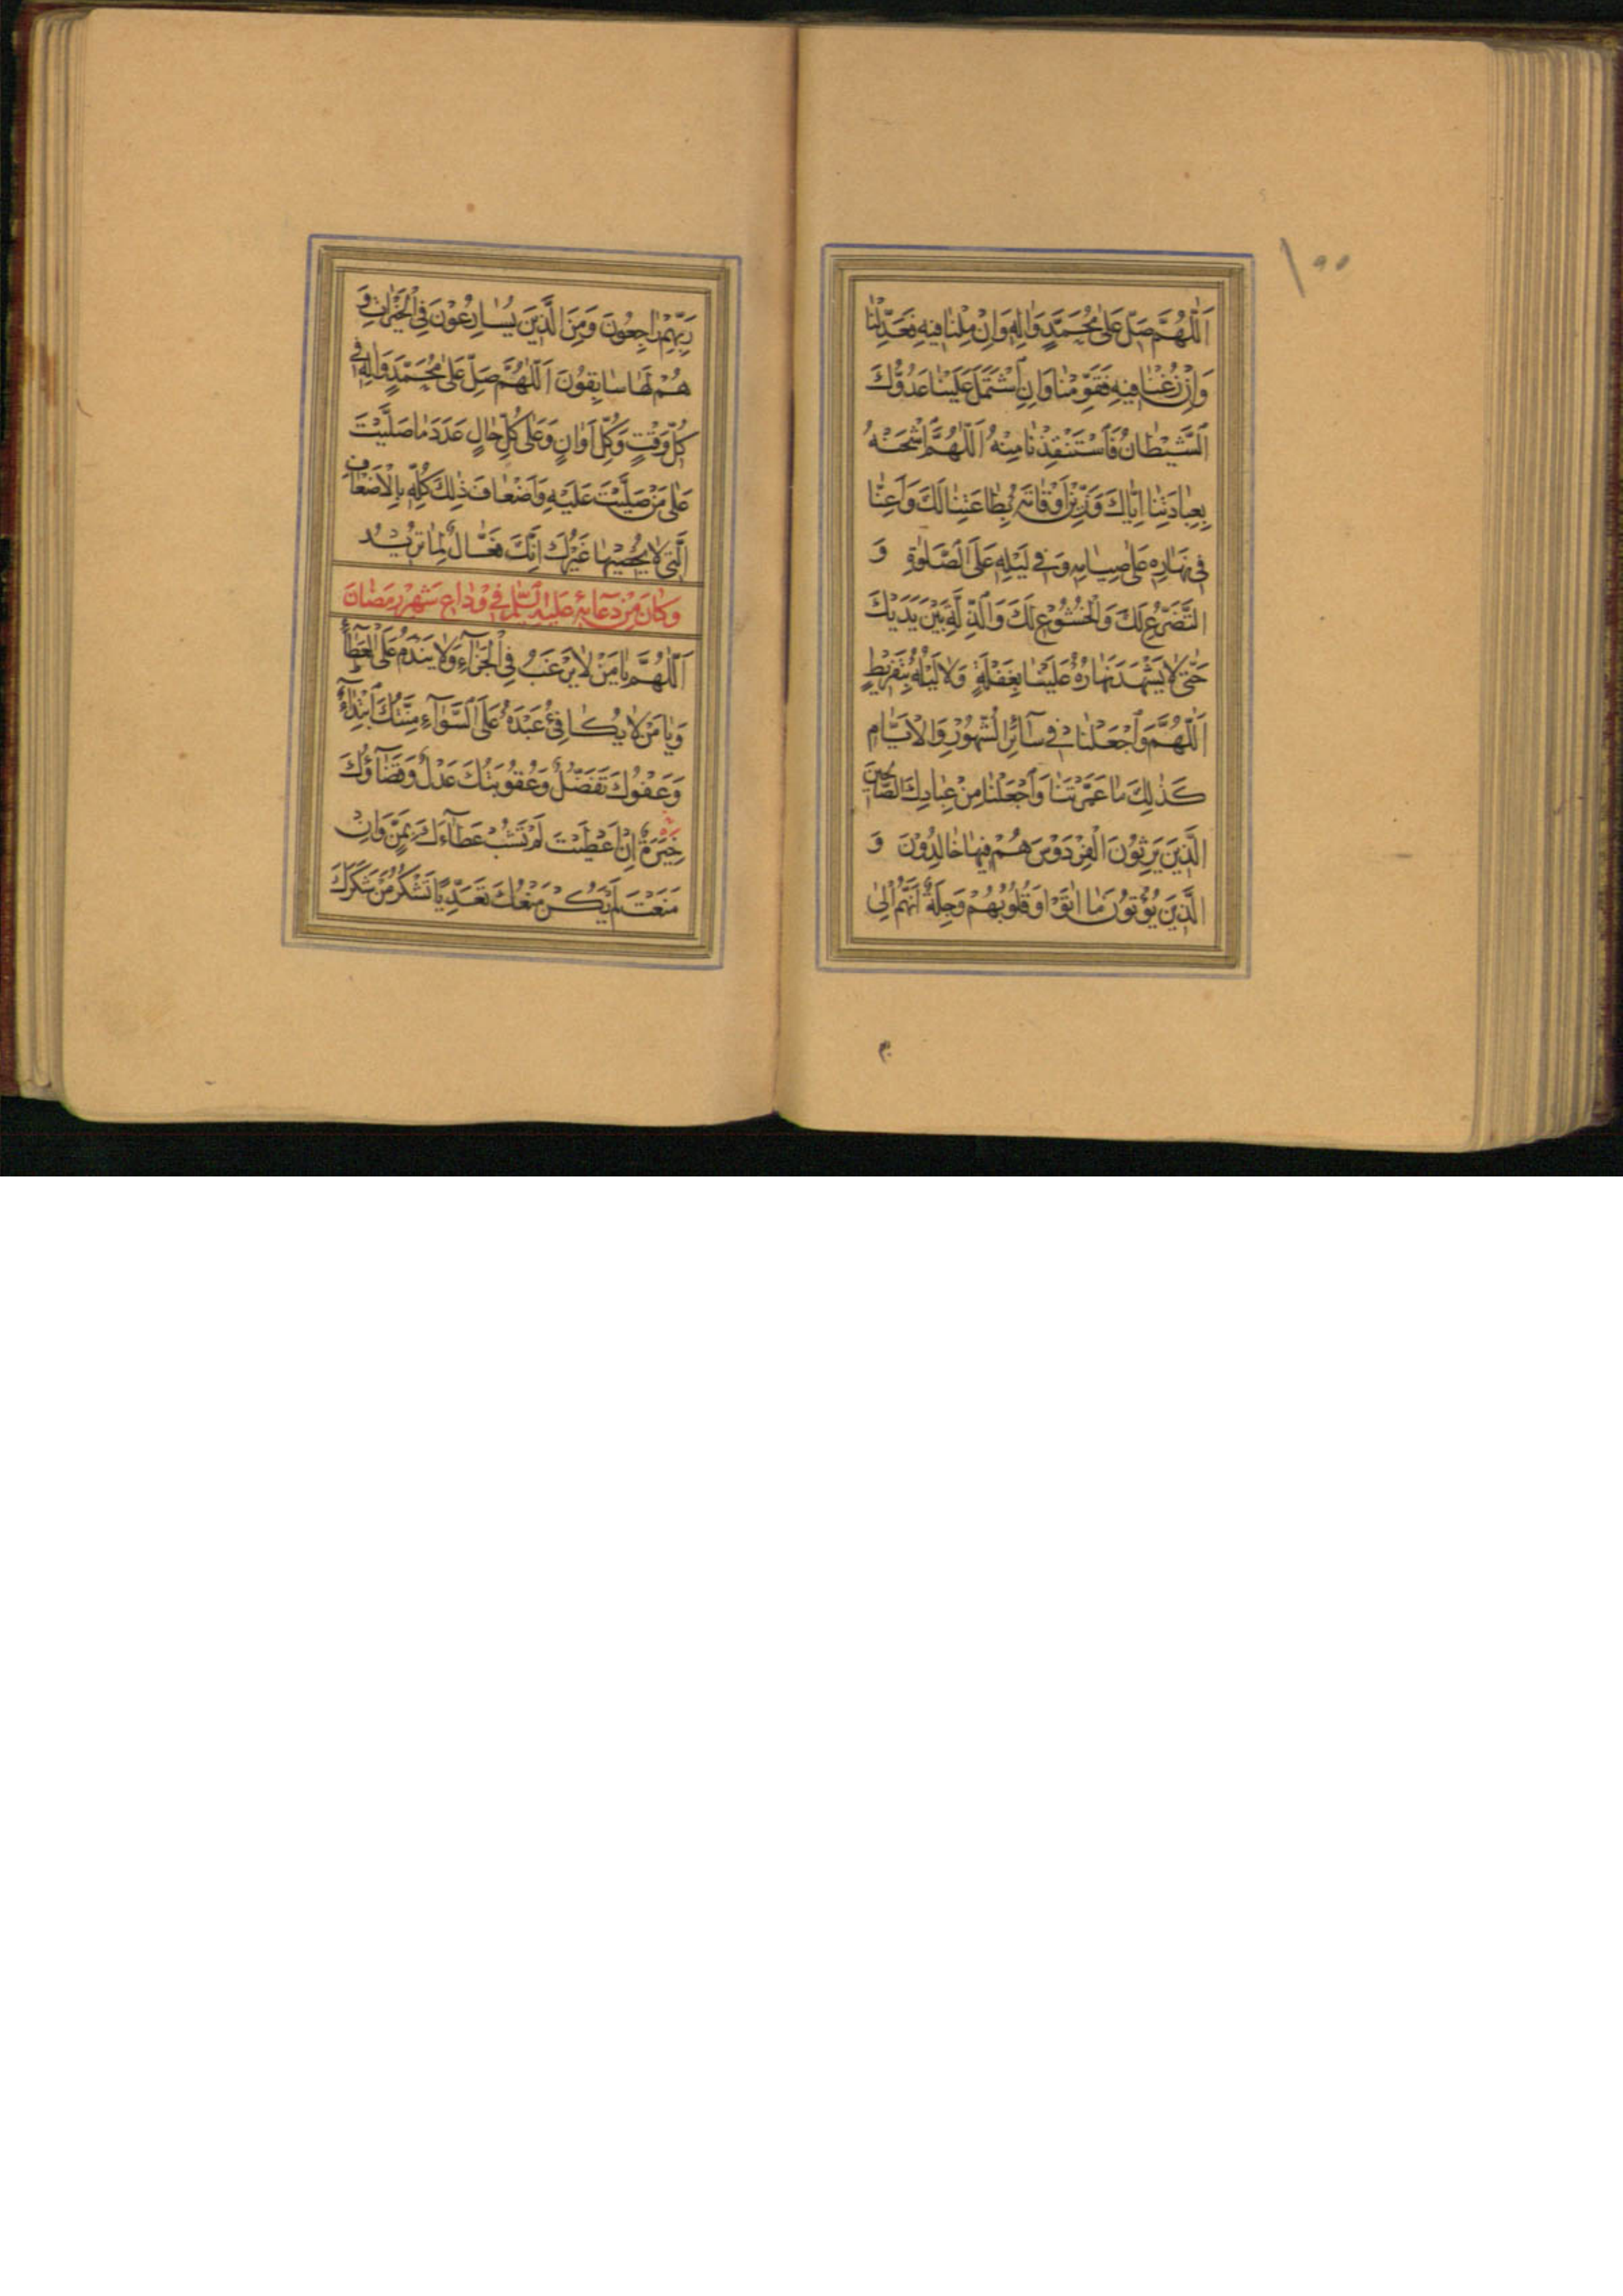 ١٠٠
اَللّٰهُمَّ صَلِّ عَلٰى مُحَمَّدٍ وَاٰلِهِ وَاِنْ مِلْنٰا فيهِ فَعَدِّلْنٰا
وَاِنْ زُغْنٰا فيهِ فَقَوِّمْنٰا وَاِنِ اشْتَمَلَ عَلَيْنٰا عَدُوُّكَ
اَلشَّيْطٰانُ فَاَسْتَنْقِذْنٰا مِنْهُ اَللّٰهُمَّ اشْحَنْهُ
بِعِبٰادَتِنٰا اِيّٰاكَ وَزَيِّنْ اَوْقٰاتَهُ بِطٰاعَتِنٰا لَكَ وَاَعِنّٰا
فى نَهٰارِهِ عَلٰى صِيٰامِهِ وَفى لَيْلِهِ عَلَى الصَّلٰوةِ وَ
التَّضَرُّعِ لَكَ وَالْخُشُوعِ لَكَ وَالذِّلَّةِ بَيْنَ يَدَيْكَ
حَتّٰى لٰا يَشْهَدَ نَهٰارُهُ عَلَيْنٰا بِغَفْلَةٍ وَلٰا لَيْلُهُ بِتَفْريطٍ
اَللّٰهُمَّ وَاجْعَلْنٰا فى سٰآئِرِ الشُّهُورِ وَالْاَيّٰامِ
كَذٰلِكَ مٰا عَمَّرْتَنٰا وَاجْعَلْنٰا مِنْ عِبٰادِكَ الصّٰالِحينَ
الَّذينَ يَرِثُونَ الْفِرْدَوْسَ هُمْ فيهٰا خٰالِدُونَ وَ
الَّذينَ يُؤْتُونَ مٰا اٰتَوْا وَقُلُوبُهُمْ وَجِلَةٌ اَنَّهُمْ اِلٰى
رَبِّهِمْ رٰاجِعُونَ وَمِنَ الَّذينَ يُسٰارِعُونَ فِى الْخَيْرٰاتِ وَ
هُمْ لَهٰا سٰابِقُونَ اَللّٰهُمَّ صَلِّ عَلٰى مُحَمَّدٍ وَاٰلِهِ فى
كُلِّ وَقْتٍ وَكُلِّ اَوٰانٍ وَعَلٰى كُلِّ حٰالٍ عَدَدَ مٰا صَلَّيْتَ
عَلٰى مَنْ صَلَّيْتَ عَلَيْهِ وَاَضْعٰافَ ذٰلِكَ كُلِّهِ بِالْاَضْعٰافِ
الَّتى لٰا يُحْصيهٰا غَيْرُكَ اِنَّكَ فَعّٰالٌ لِمٰا تُريدُ
وَكٰانَ مِنْ دُعٰائِهِ عَلَيْهِ السَّلٰم فى وِدٰاعِ شَهْرِ رَمَضٰانَ
اَللّٰهُمَّ يٰا مَنْ لٰا يَرْغَبُ فِى الْجَزٰآءِ وَلٰا يَنْدَمُ عَلَى الْعَطٰآءِ
وَيٰا مَنْ لٰا يُكٰافِئُ عَبْدَهُ عَلَى السَّوٰآءِ مِنَّتُكَ ابْتِدٰآءٌ
وَعَفْوُكَ تَفَضُّلٌ وَعُقُوبَتُكَ عَدْلٌ وَقَضٰآؤُكَ
خِيَرَةٌ اِنْ اَعْطَيْتَ لَمْ تَشُبْ عَطٰآءَكَ بِمَنٍّ وَاِنْ
مَنَعْتَ لَمْ يَكُنْ مَنْعُكَ تَعَدِّيًا تَشْكُرُ مَنْ شَكَرَكَ